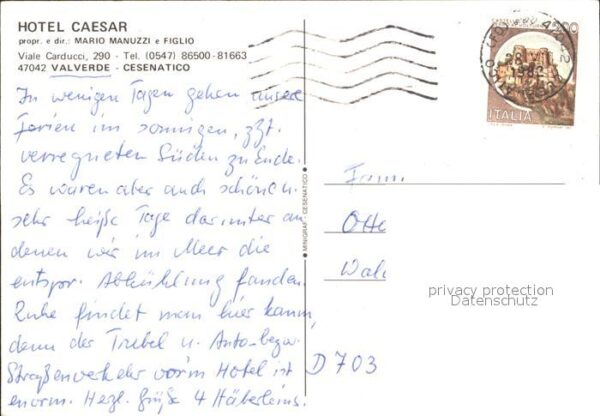 HOTEL CAESAR
propr. e dir.: MARIO MANUZZI e FIGLIO
Viale Carducci, 290 - Tel. (0547) 86500 - 81663
47042 VALVERDE - CESENATICO
In wenigen Tagen gehen unsere
Ferien im sonnigen, zzt.
verregneten Süden zu Ende.
Es waren aber auch schöne u.
sehr heiße Tage darunter an
denen wir im Meer die
entspr. Abkühlung fanden.
Ruhe findet man hier kaum,
denn der Trubel u. Auto- bezw.
Straßenverkehr vor'm Hotel ist
enorm. Herzl. Grüße 4 Häberleins.
MINIGRAF - CESENATICO
ITALIA
1982
Fam.
Otto
D 703
privacy protection
Datenschutz